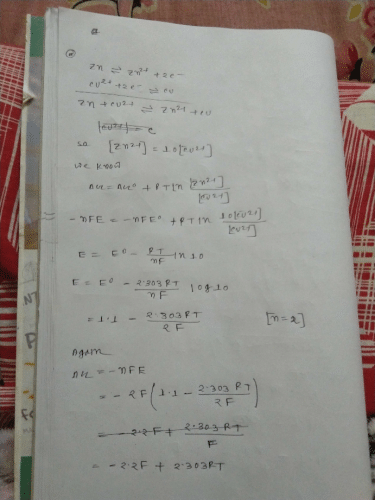 Zn ⇌ Zn²⁺ + 2e⁻
Cu²⁺ + 2e⁻ ⇌ Cu
Zn + Cu²⁺ ⇌ Zn²⁺ + Cu
[Cu²⁺] = C
so [Zn²⁺] = 10[Cu²⁺]
we know
ΔG = ΔG° + RT ln [Zn²⁺]/[Cu²⁺]
-nFE = -nFE° + RT ln 10[Cu²⁺]/[Cu²⁺]
E = E° - RT/nF ln 10
E = E° - 2.303RT/nF log 10
= 1.1 - 2.303RT/2F [n=2]
Again
ΔG = -nFE
= -2F(1.1 - 2.303 RT/2F)
= -2.2F + 2.303 RT/F
= -2.2F + 2.303RT